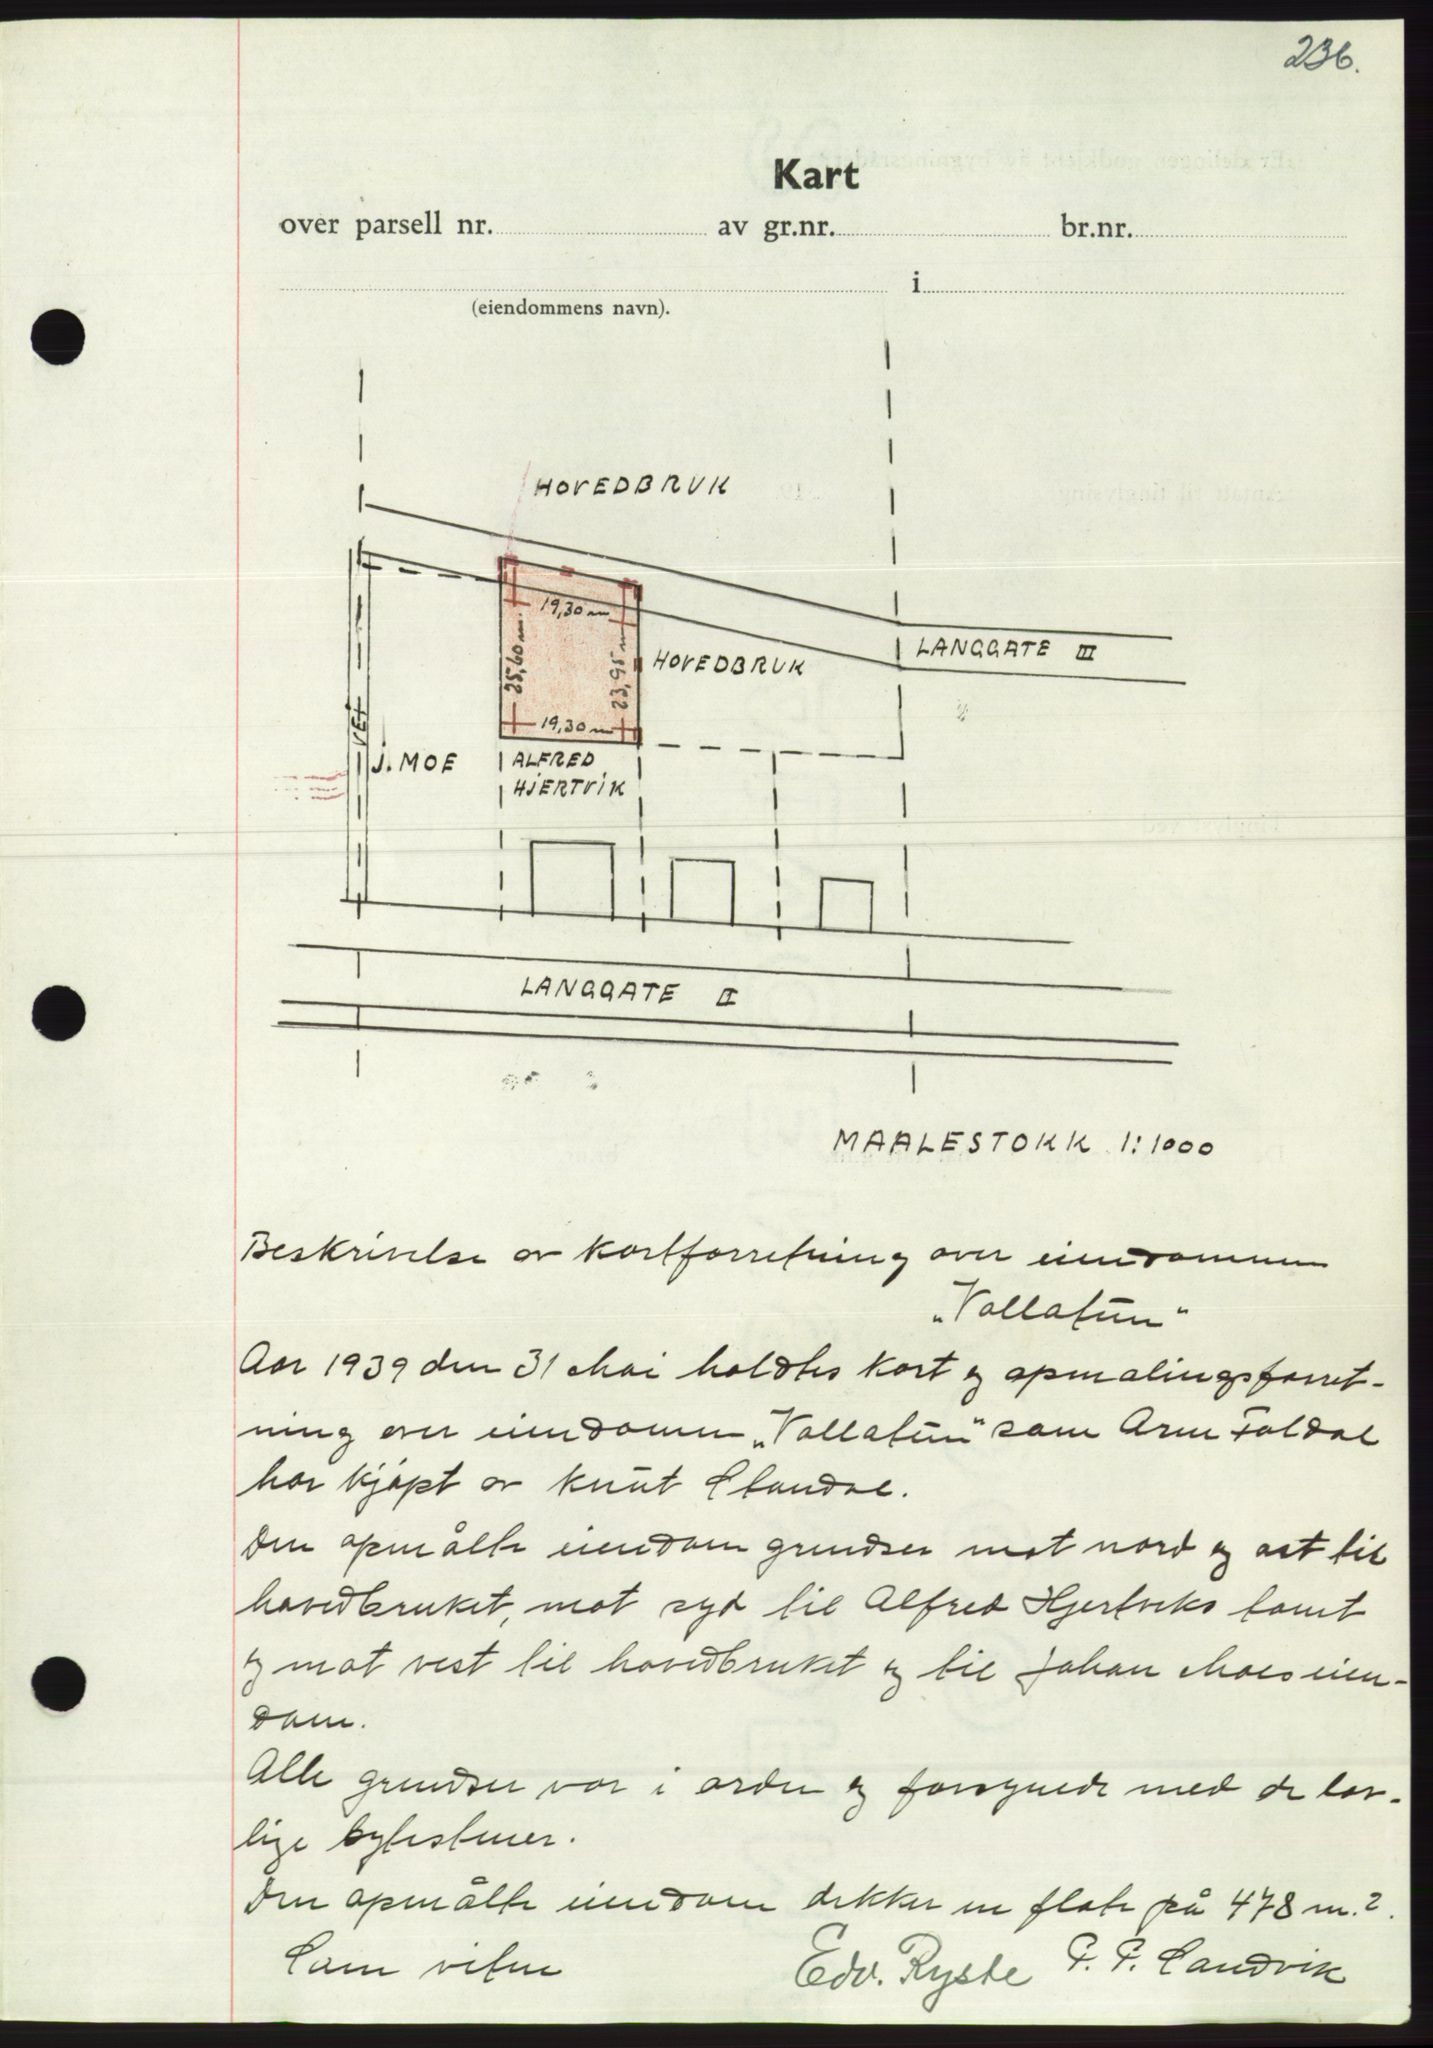 236.
Kart
over parsell nr. av gr.nr. br.nr.
i
(eiendommens navn).
HOVEDBRUK
19,30 m
LANGGATE III
25,60 m.
23,95 m
HOVEDBRUK
19,30 m
J. MOE
ALFRED
HJERTVIK
LANGGATE II
MAALESTOKK 1:1000
Beskrivelse av kartforretning over eiendommen
„Vallatun“
Aar 1939 den 31 Mai holdtes kart og opmalingsforret-
ning over eiendomen „Vallatun“ som Arne Foldal
har kjøpt av Knut Standal.
Den opmålte eiendom grendser mot nord og øst til
hovedbruket, mot syd til Alfred Hjertviks tomt
og mot vest til hovedbruket og til Johan Moes eien-
dom.
Alle grendser var i orden og forsynede med de lov-
lige bytestener.
Den opmålte eiendom dekker en flate på 478 m.2.
Som vitne
Edv. Ryste P. P. Sandvik